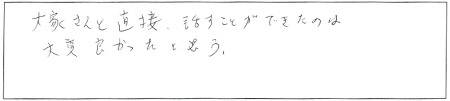 大家さんと直接、話すことができたのは
大変良かったと思う。